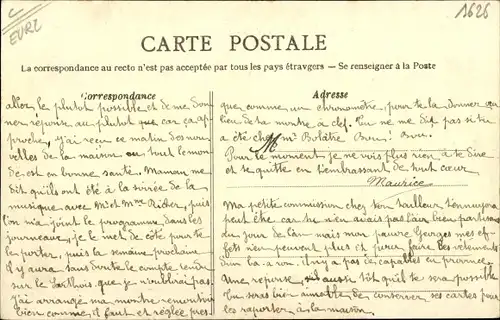 EURE
1626
CARTE POSTALE
La correspondance au recto n'est pas acceptée par tous les pays étrangers — Se renseigner à la Poste
Correspondance
Adresse
aller le plutot possible et de me don
ner réponse au plutot que car ça ap
proche, j'ai reçu ce matin des nou
velles de la maison ou tout le mon
de est en bonne santé. Maman me
dit qu'ils ont été à la soirée de la
musique avec Mr et Mme Rider, puis
l'on m'a joint le programme dans les
journeaux, je le met de côté pour te
le porter, puis la semaine prochaine
il y aura sans doute le compte rendu
sur le que je n'oublirai pas
j'ai arrangé ma montre remontoir
bien comme il faut et réglée pres
que comme un chronomètre, pour te la donner au
lieu de ta montre à clef. Tu ne me dis pas si tu
a été chez Mr Bolâtre Bou! Bou.
Pour le moment je ne vois plus rien à te dire
et se quitte en t'embrassant de tout cœur
Maurice
Ma petite commission chez ton tailleur t'ennuyera
peut être car tu n'en avais pas l'air bien partisan
du jour de l'an mais mon pauvre Georges mes ef
fets n'en peuvent plus et pour faire les vêtements
d'en ba-a-ron il n'y a pas de capables en province
Une réponse, aussi tôt qu'il te sera possible
Tu seras bien aimable de conserver ses cartes pour
les rapporter à la maison.